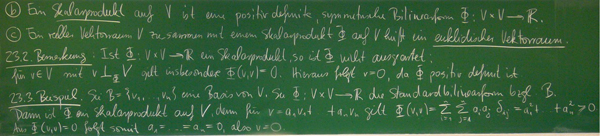 (b) Ein Skalarprodukt auf V ist eine positiv definite, symmetrische Bilinearform Φ: V×V → ℝ.
(c) Ein reeller Vektorraum V zusammen mit einem Skalarprodukt Φ auf V heißt ein euklidischer Vektorraum.
23.2. Bemerkung: Ist Φ: V×V → ℝ ein Skalarprodukt, so ist Φ nicht ausgeartet:
für v∈V mit v ⊥_Φ V gilt insbesondere Φ(v,v)=0. Hieraus folgt v=0, da Φ positiv definit ist
23.3 Beispiel Sei B={v₁,...,vₙ} eine Basis von V. Sei Φ: V×V → ℝ die Standardbilinearform bzgl. B.
Dann ist Φ ein Skalarprodukt auf V, denn für v = a₁v₁+ ... +aₙvₙ gilt Φ(v,v) = Σ_{i=1}^n Σ_{j=1}^n aᵢaⱼ δᵢⱼ = a₁²+ ... +aₙ² ≥ 0
Aus Φ(v,v)=0 folgt somit a₁=...=aₙ=0, also v=0